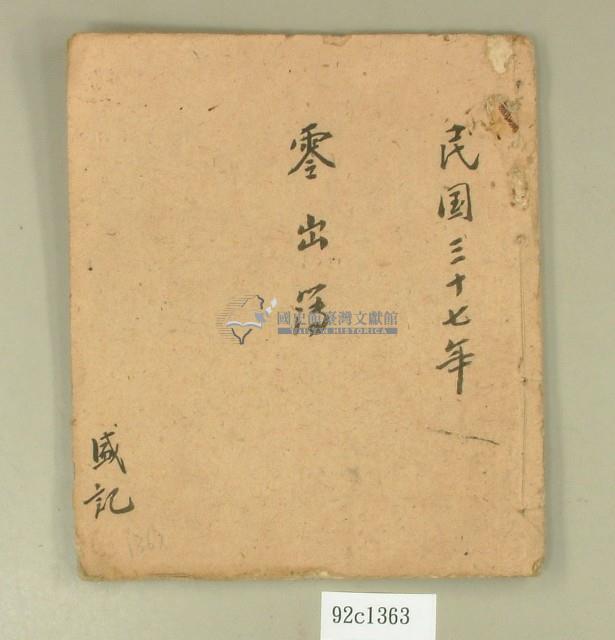 民国三十七年
零出簿
盛記
1363
國史館臺灣文獻館
TAIWAN HISTORICA
92c1363